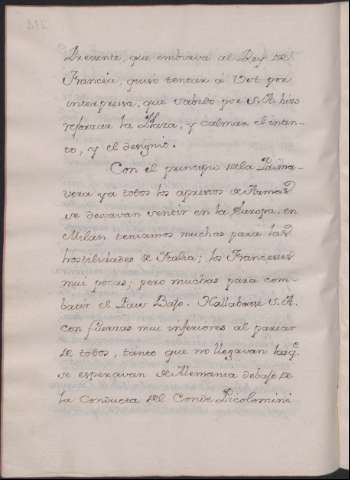 Presente, que embiava al Rey de
Francia, quiso tentar à Vot por
interpresa, que sabido por S. A. hizo
reforzar la Plaza, y calmar el inten-
to, y el designio.
Con el principio de la Prima-
vera ya todos los aprestos de Armas
se dexavan sentir en la Europa, en
Milàn teniamos muchas para las
hostilidades de Italia; los Franceses
mui pocas; pero muchas para com-
batir el Pais Bajo. Hallabase S. A.
con fuerzas mui inferiores al parecer
de todos, tanto que no llegavan las q.e
se esperavan de Alemania debajo de
la conducta del Conde Picolomini